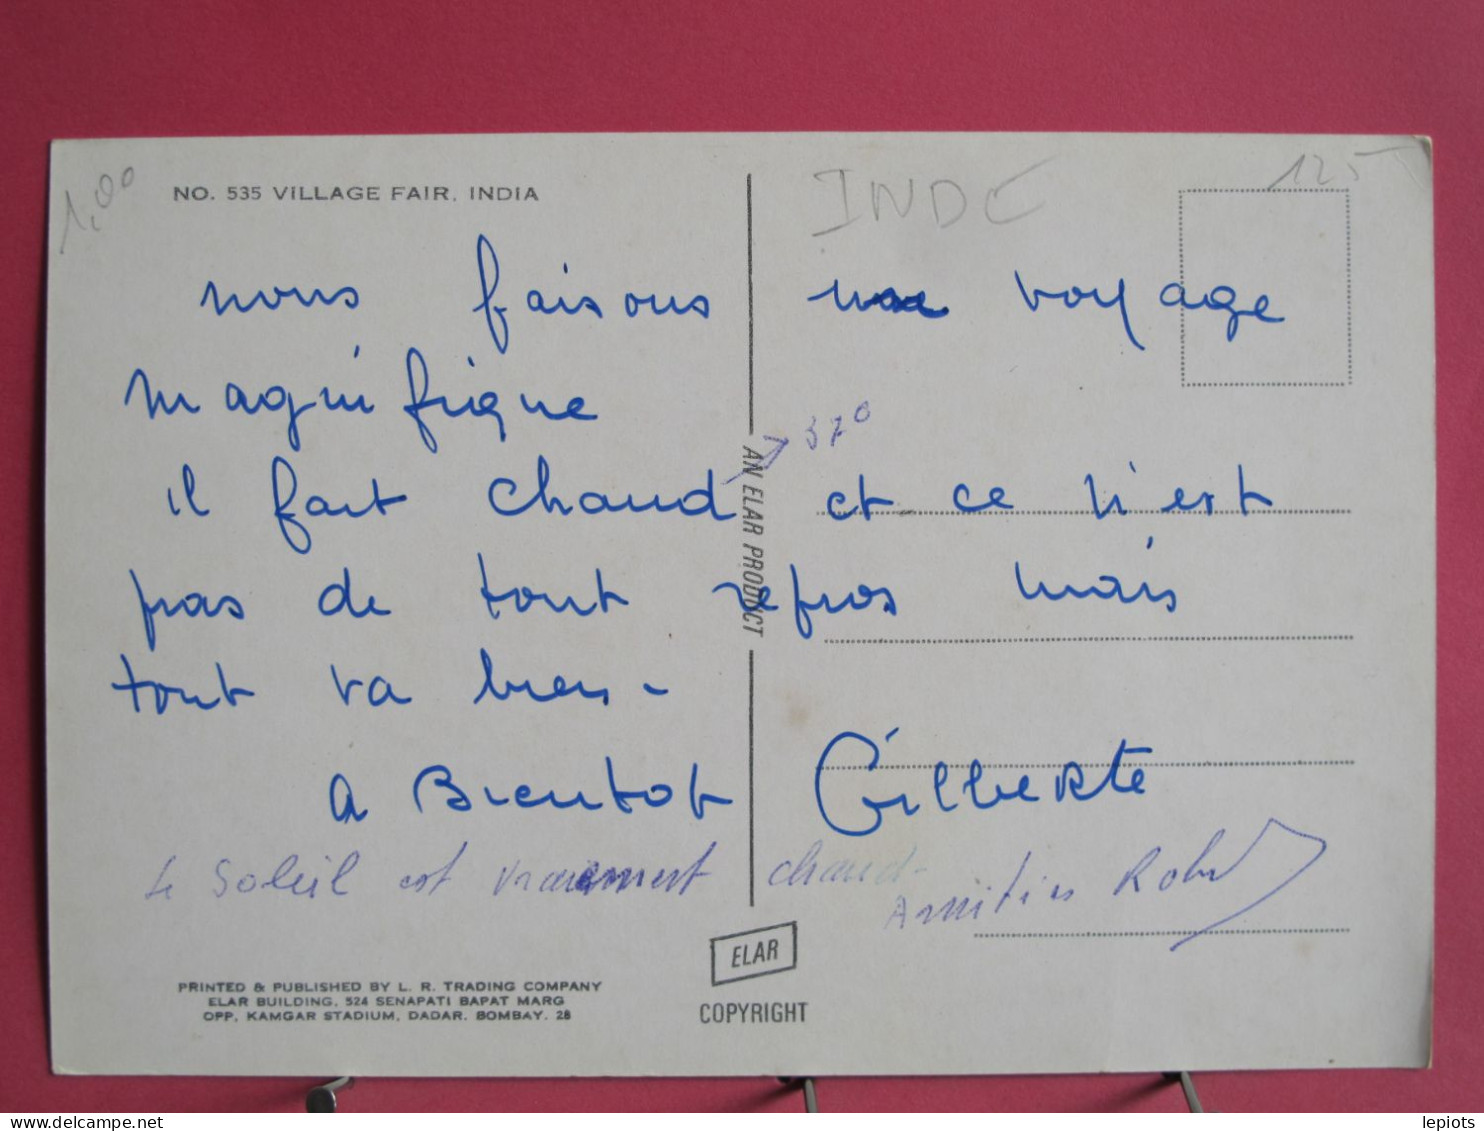 1,00
NO. 535 VILLAGE FAIR, INDIA
INDE
125
nous faisons un voyage
magnifique
37°
il fait chaud et ce n'est
pas de tout repos mais
tout va bien -
a Bientot Gilberte
Le soleil est vraiment chaud -
Amitiés Robert
AN ELAR PRODUCT
ELAR
COPYRIGHT
PRINTED & PUBLISHED BY L. R. TRADING COMPANY
ELAR BUILDING, 524 SENAPATI BAPAT MARG
OPP. KAMGAR STADIUM, DADAR. BOMBAY. 28
lepiots